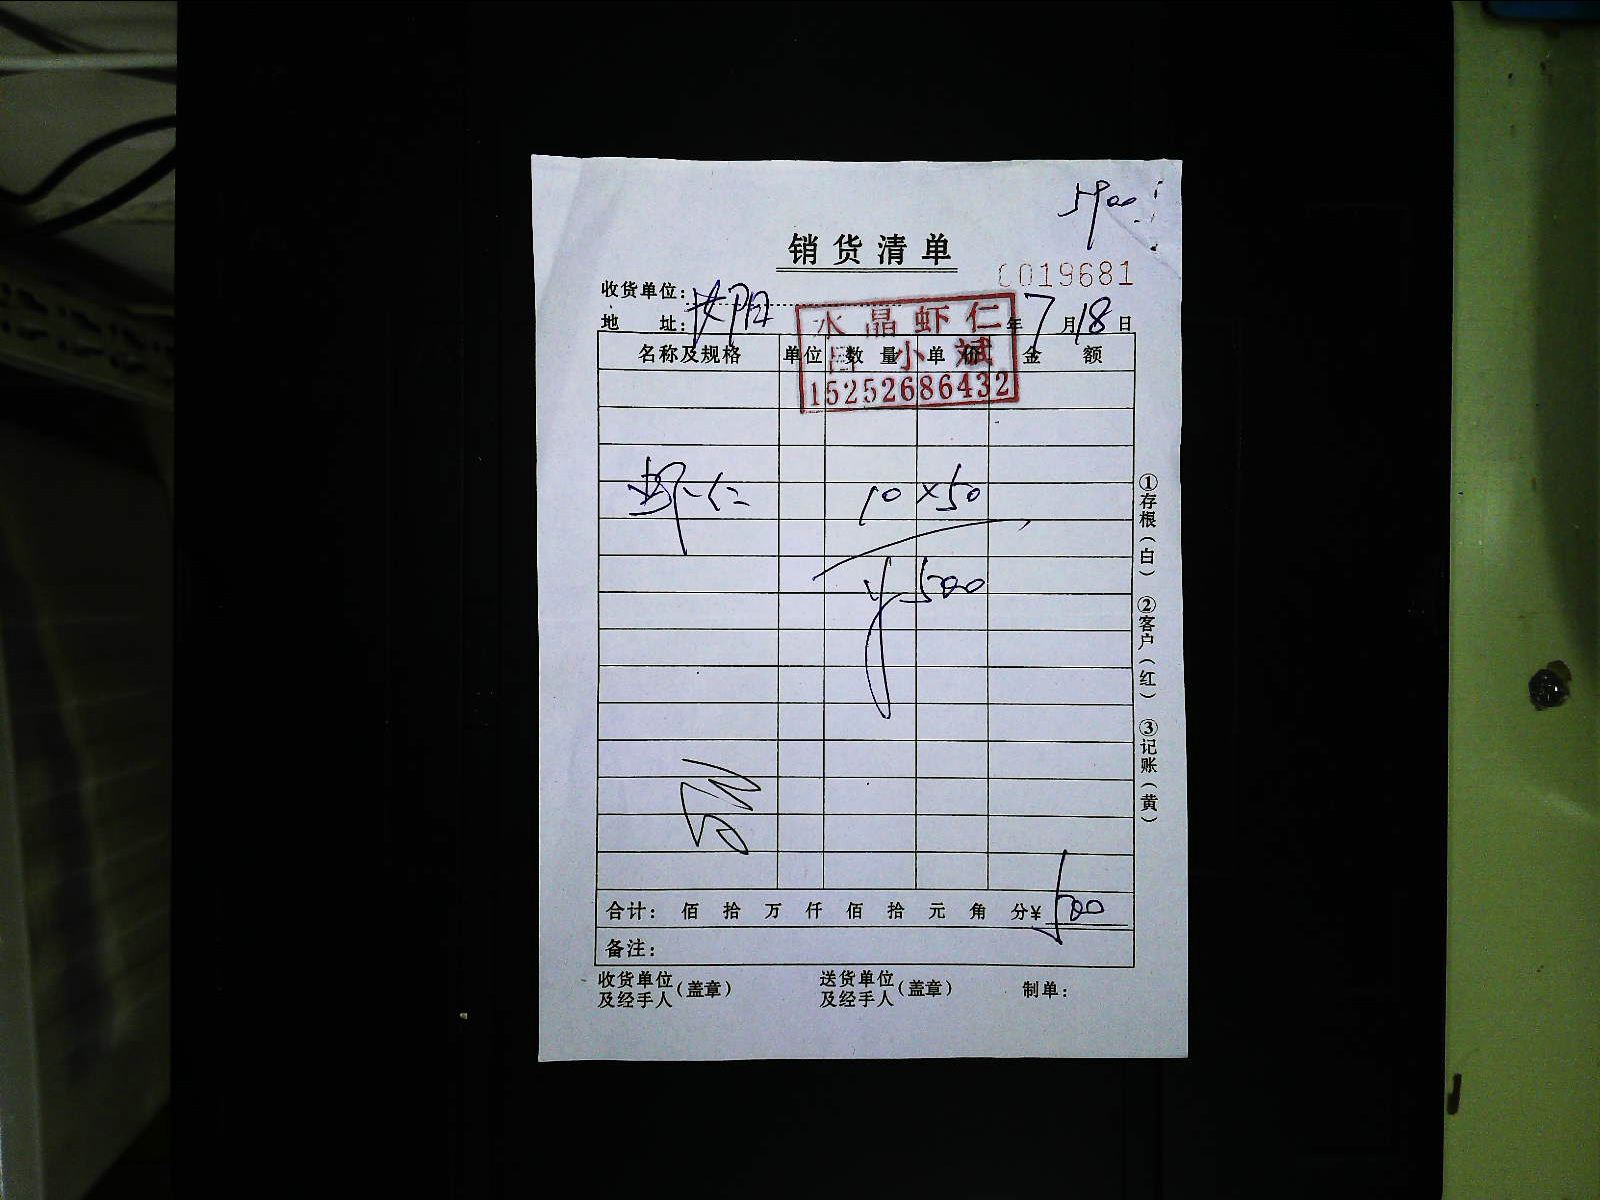 销货清单
0019681
收货单位:
地 址: 年7月18日
水晶虾仁
小斌
15252686432
名称及规格 单位 数量 单价 金额
虾仁 10×50
¥500
合计: 佰 拾 万 仟 佰 拾 元 角 分¥ 500
备注:
收货单位及经手人(盖章) 送货单位及经手人(盖章) 制单:
①存根(白) ②客户(红) ③记账(黄)